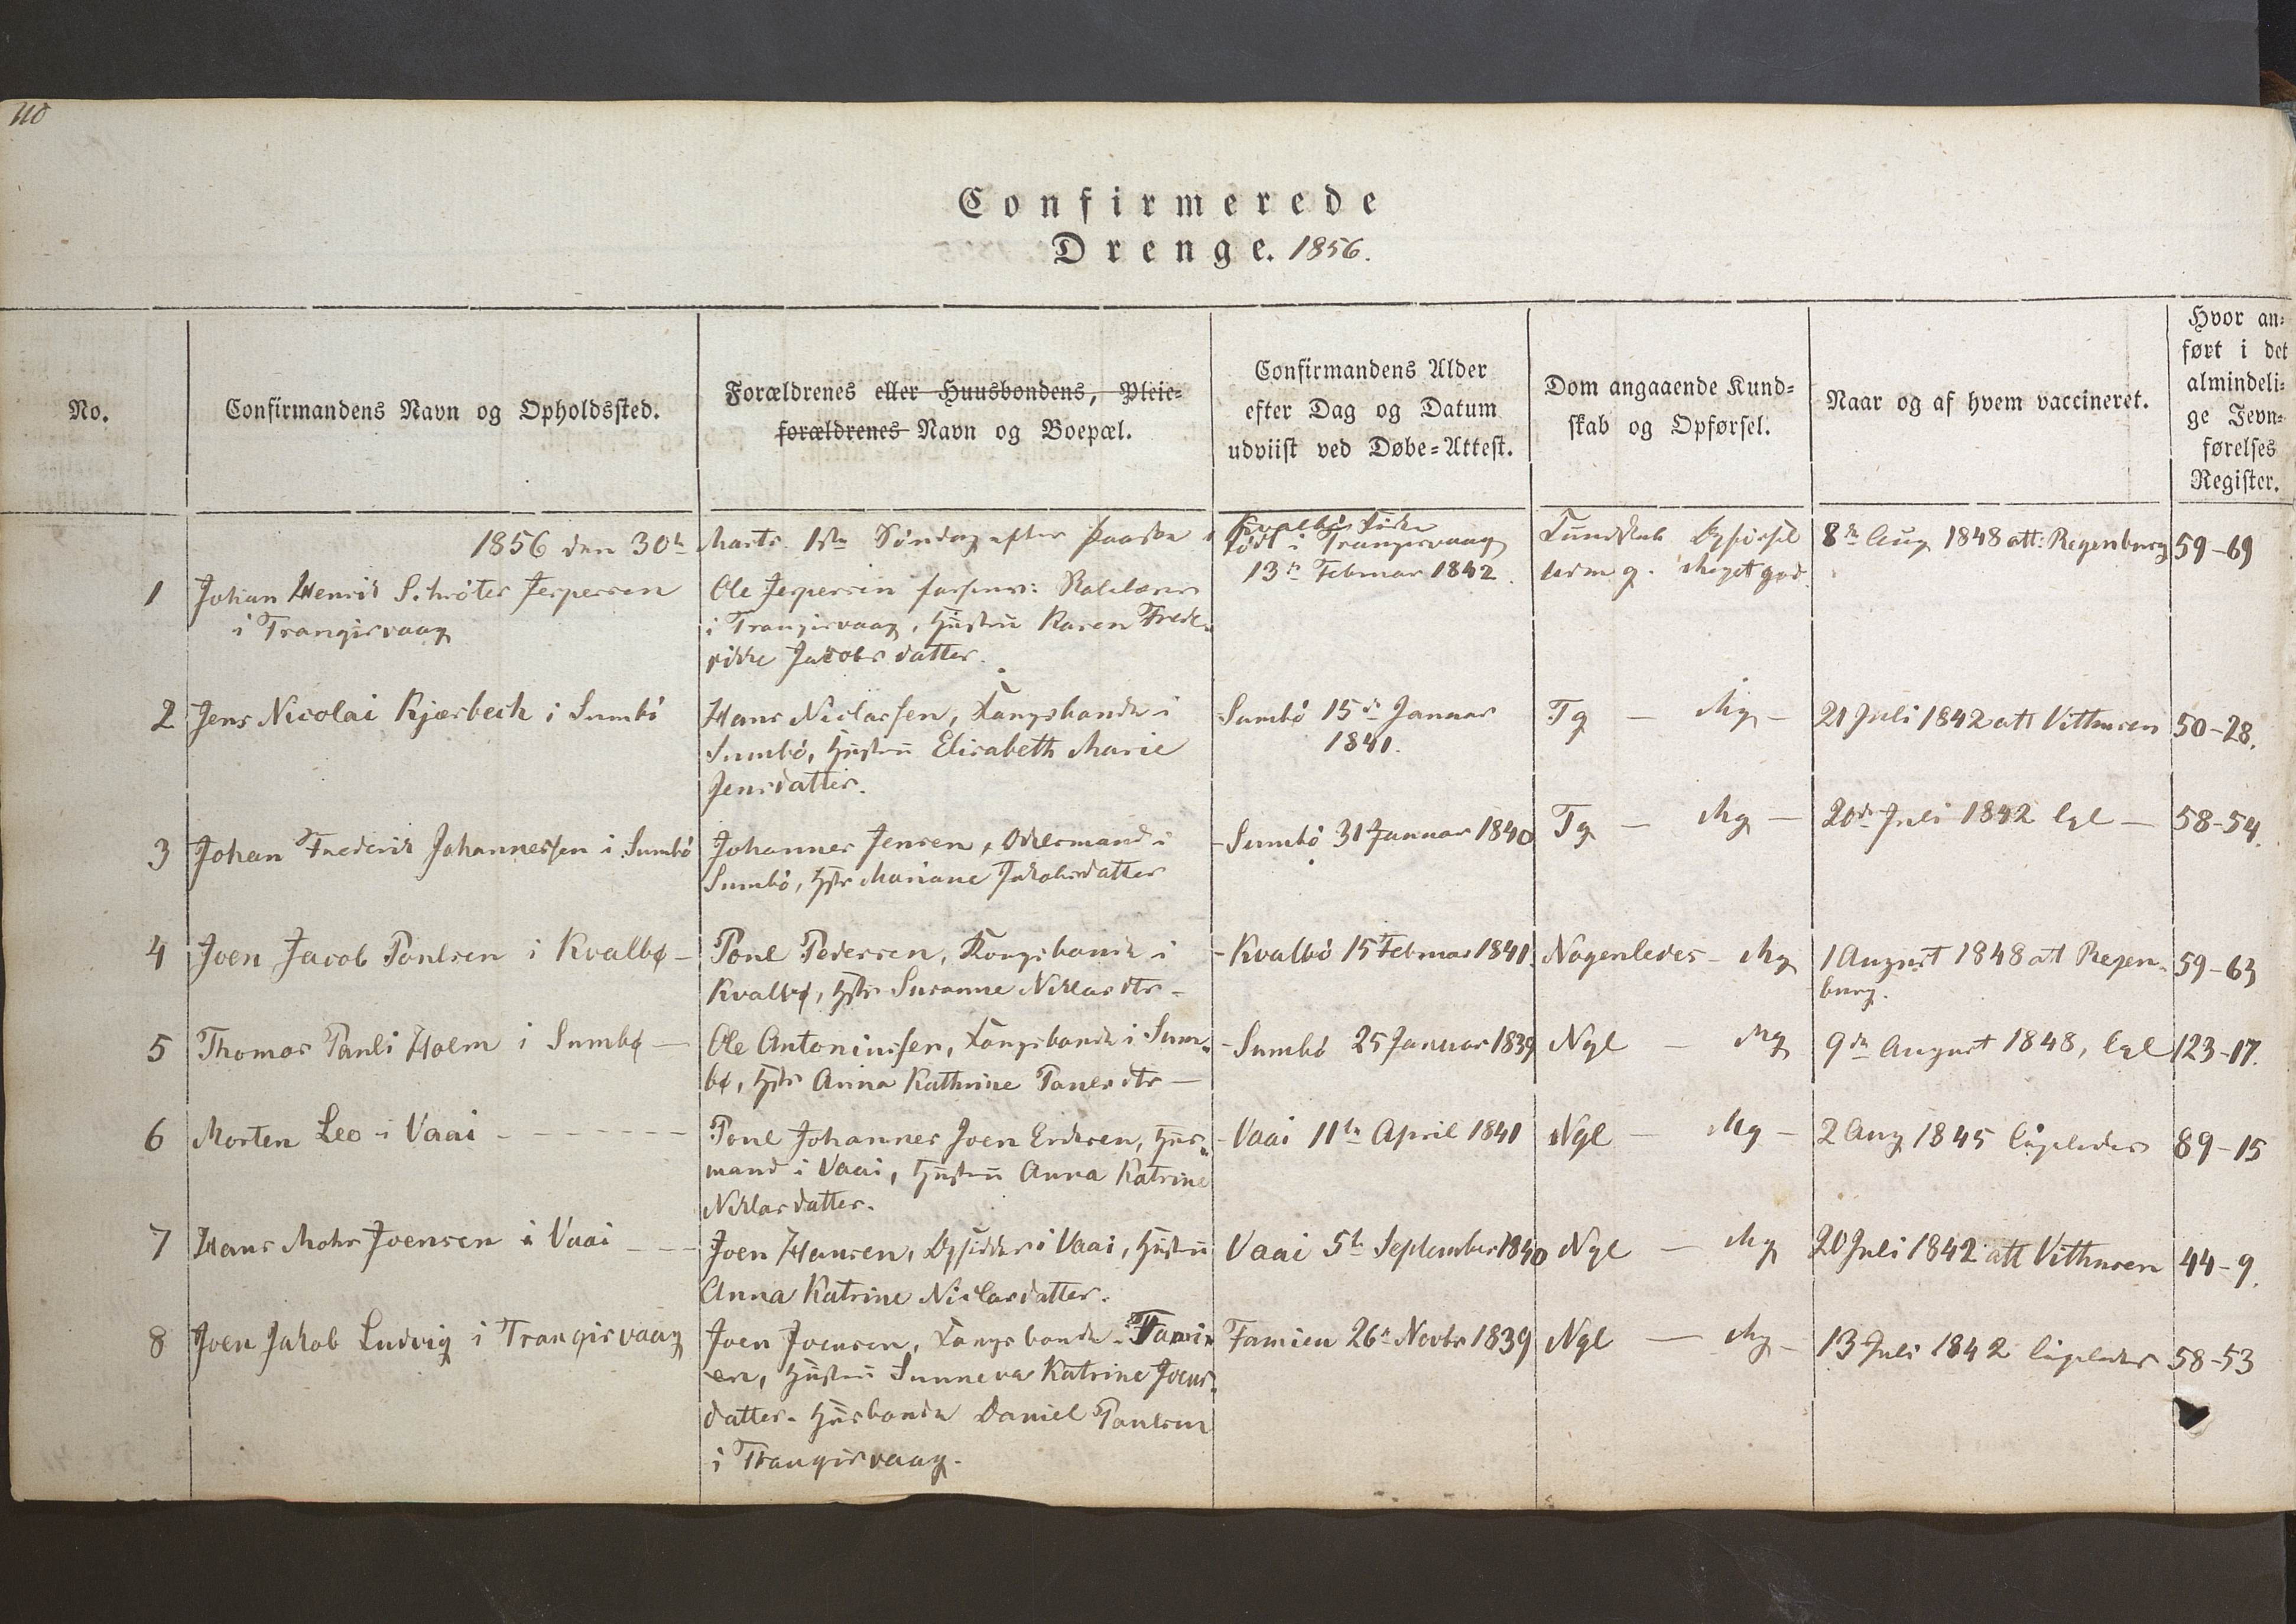 110
Confirmerede
Drenge. 1856.
No.
Confirmandens Navn og Opholdssted.
Forældrenes eller Huusbondens, Pleie-
forældrenes Navn og Boepæl.
Confirmandens Alder
efter Dag og Datum
udviist ved Døbe-Attest.
Dom angaaende Kund-
skab og Opførsel.
Naar og af hvem vaccineret.
Hvor an-
ført i det
almindeli-
ge Jevn-
førelses
Register.
1856 den 30te Marts 1ste Søndag efter Paaske i Kvalbø Kirke
1
Johan Henrik Schrøter Jespersen
i Trangisvaag
Ole Jespersen
i Trangisvaag, Hustru Karen Frede-
rikke Jacobsdatter.
født i Trangisvaag
13de Februar 1842.
Kundskab Opførsel
Meget god
8de Aug 1848 att: Regenburg
59-69
2
Jens Nicolai Kjærbech i Sumbø
Hans Niclassen, Kongsbonde i
Sumbø, Hustru Elisabeth Marie
Jensdatter.
Sumbø 15de Januar
1841.
Tg - Mg -
21 Juli 1842 att Vithusen
50-28.
3
Johan Frederik Johannessen i Sumbø
Johannes Jensen, Odelsmand i
Sumbø, Hstr Mariane Jakobsdatter
- Sumbø 31 Januar 1840
Tg - Mg -
20de Juli 1842 lgl -
58-54.
4
Joen Jacob Poulsen i Kvalbø -
Poul Pedersen, Kongsbonde i
Kvalbø, Hstr Susanne Niklasdtr -
- Kvalbø 15 Februar 1841.
Nogenledes - Mg
1 August 1848 att Regen-
burg.
59-63
5
Thomas Pauli Holm i Sumbø -
Ole Antoniussen, Kongsbonde i Sum-
bø, Hstr Anna Kathrine Poulsdtr -
- Sumbø 25 Januar 1839
Ngl - Mg
9de August 1848, lgl
123-17.
6
Morten Leo i Vaai - - - - - -
Poul Johannes Joen Erdsen, Huus-
mand i Vaai, Hustru Anna Katrine
Niklasdatter.
- Vaai 11te April 1841
Ngl - Mg -
2 Aug 1845 ligeledes
89-15
7
Hans Mohr Joensen i Vaai - -
Joen Hansen, Opsidder i Vaai, Hustru
Anna Katrine Niclasdatter.
Vaai 5te September 1840
Ngl - Mg
20 Juli 1842 att Vithusen
44-9.
8
Joen Jakob Ludvig i Trangisvaag
Joen Joensen, Kongsbonde - Fami-
en, Hustru Sunneva Katrine Joens-
datter. Huusbonde Daniel Poulsen
i Trangisvaag.
Famien 26de Novbr 1839
Ngl - Mg -
13 Juli 1842 ligeledes
58-53